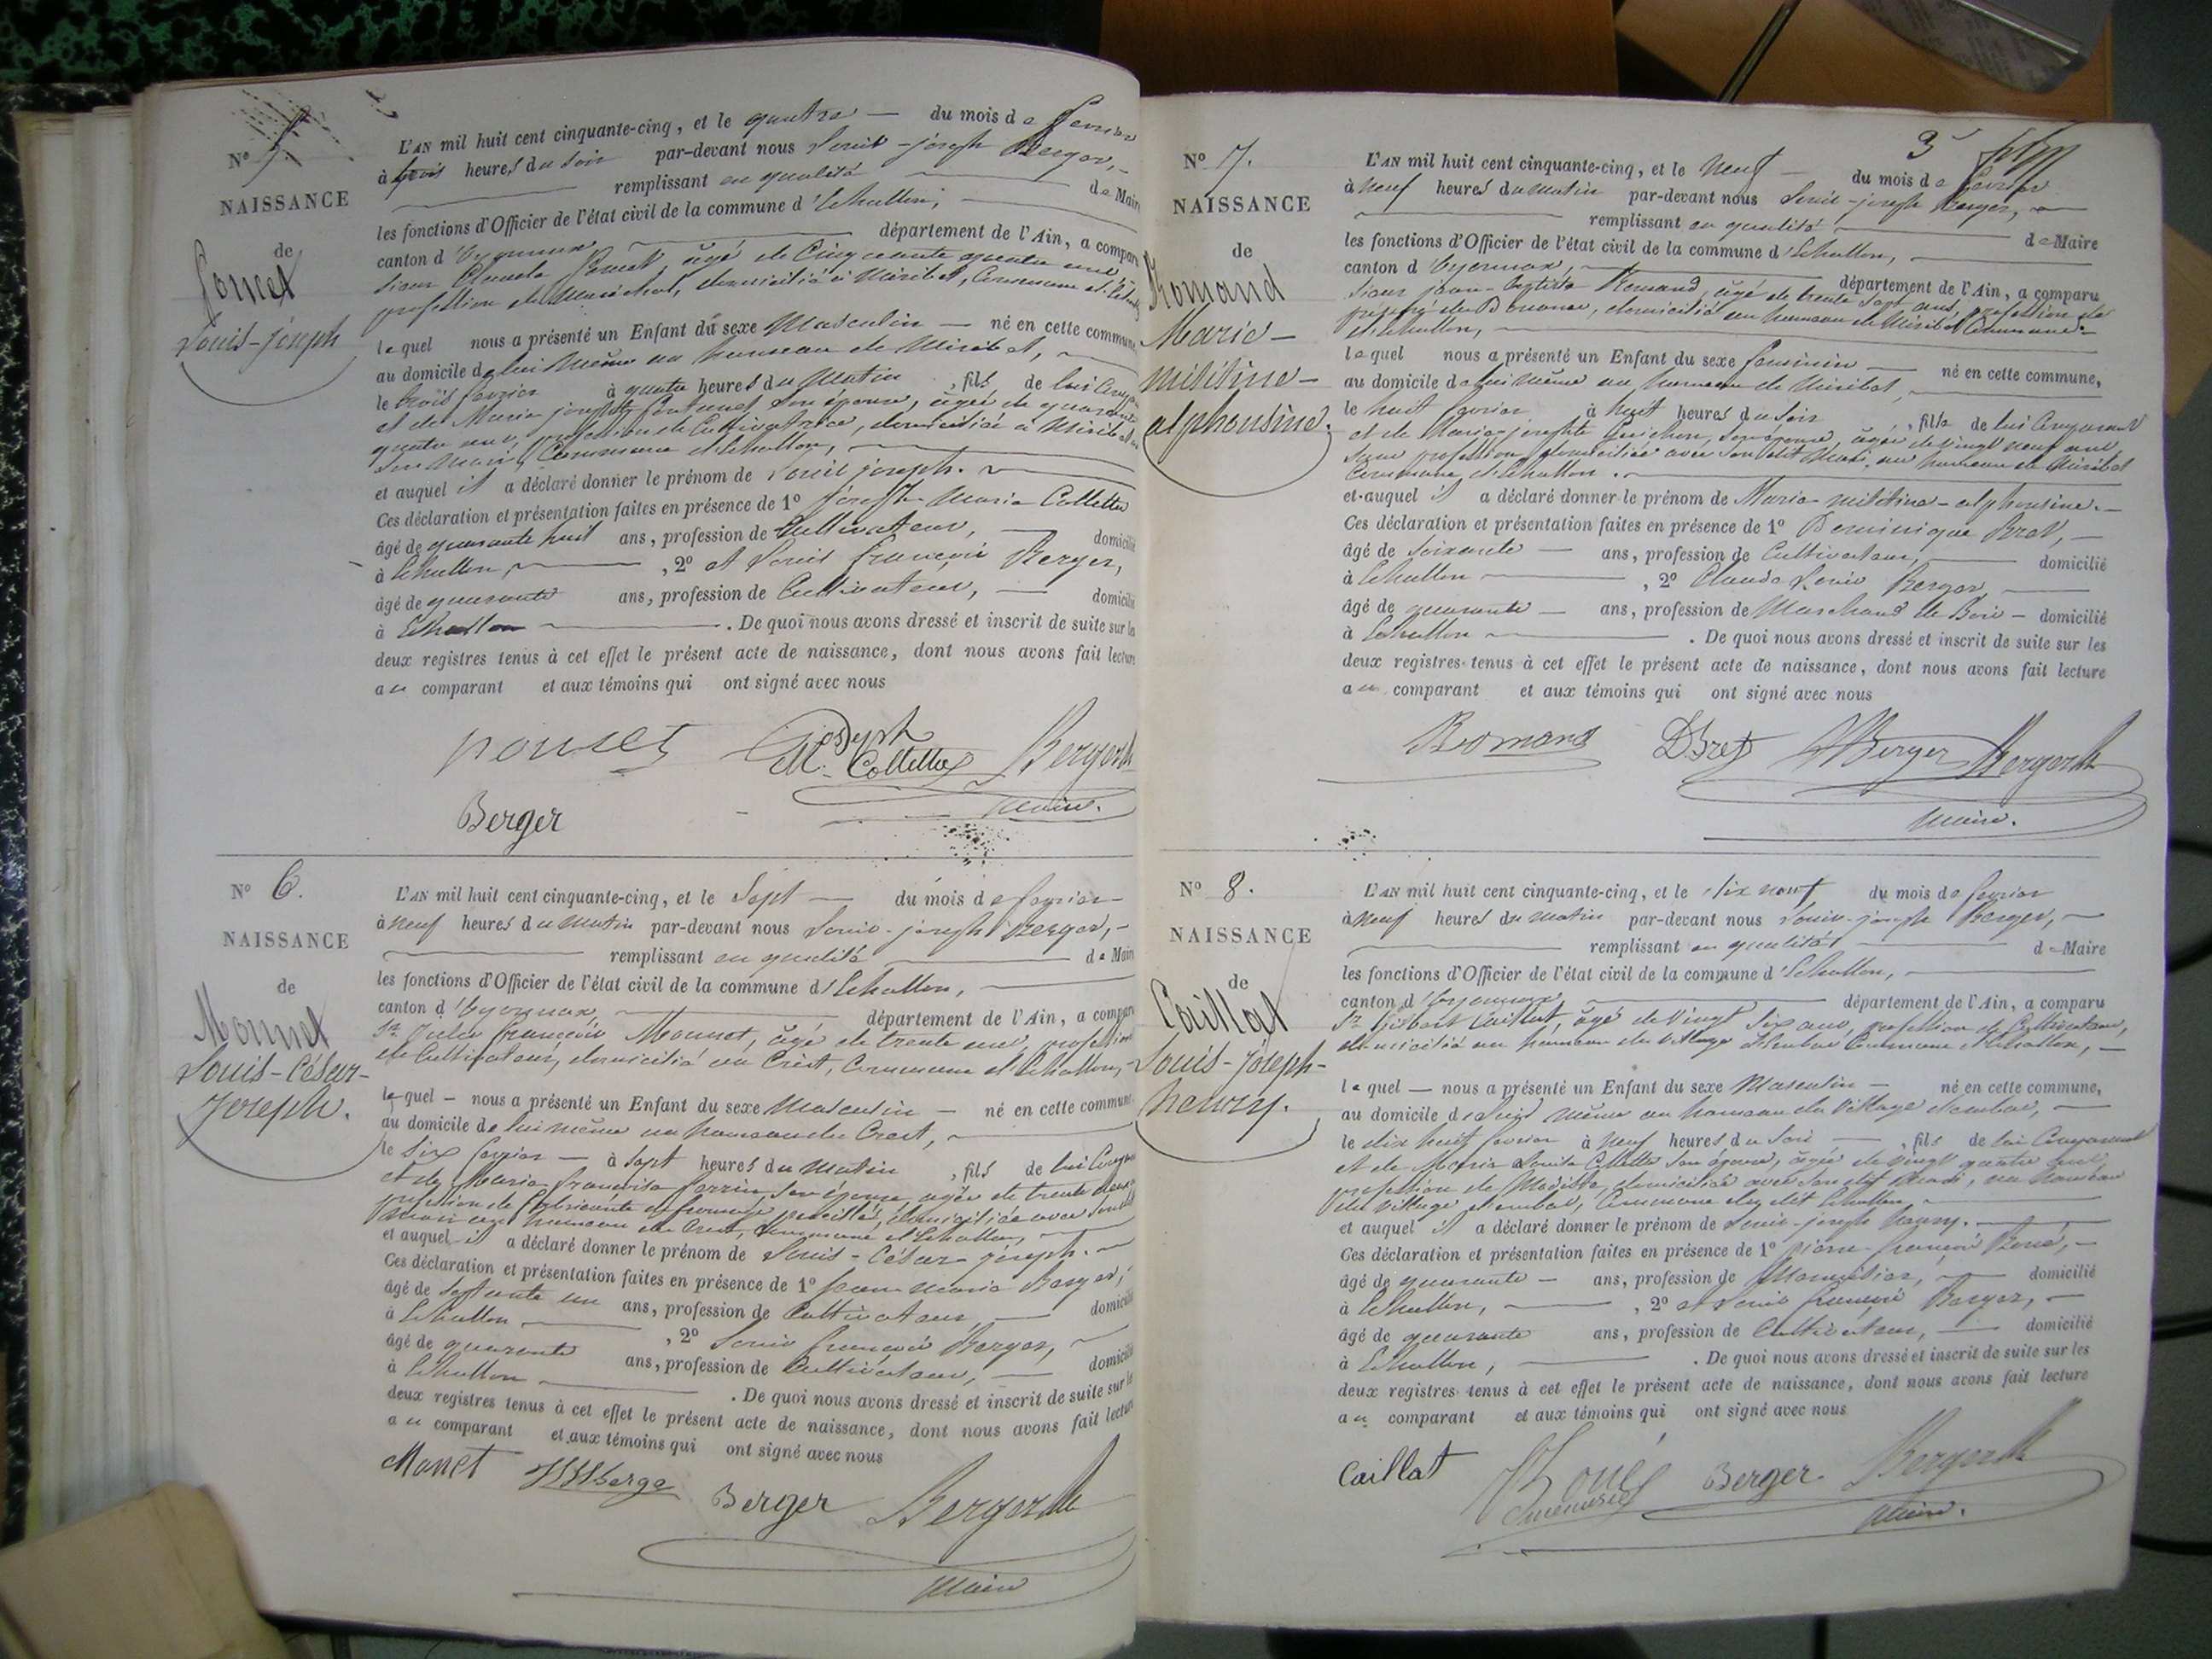 N° 5.
NAISSANCE
de
Poncet
Louis-joseph
L'AN mil huit cent cinquante-cinq, et le quatre — du mois de février
à trois heures du soir par-devant nous Louis-joseph Berger,
remplissant en qualité de Maire
les fonctions d'Officier de l'état civil de la commune d'Echallon,
canton d'oyonnax, département de l'Ain, a comparu
sieur Claude Poncet âgé de Cinquante quatre ans
profession de Maréchal, domicilié à Miribel, Commune d'Echallon
lequel nous a présenté un Enfant du sexe Masculin — né en cette commune,
au domicile de lui même au hameau de Miribel,
le trois février à quatre heures du Matin, fils de lui Comparant
et de Maria josephte son épouse, âgée de quarante
quatre ans, profession de Cultivatrice, domiciliée à Miribel
son Mari, Commune d'Echallon,
et auquel il a déclaré donner le prénom de Louis joseph.
Ces déclaration et présentation faites en présence de 1° joseph Maria Collettaz
âgé de quarante huit ans, profession de Cultivateur, domicilié
à Echallon, 2° et Louis françois Berger,
âgé de quarante ans, profession de Cultivateur, — domicilié
à Echallon. De quoi nous avons dressé et inscrit de suite sur les
deux registres tenus à cet effet le présent acte de naissance, dont nous avons fait lecture
au comparant et aux témoins qui ont signé avec nous
Joseph
M. Collettaz
Berger
Maire.
N° 6.
NAISSANCE
de
Monnet
Louis-César-
Joseph.
L'AN mil huit cent cinquante-cinq, et le Sept — du mois de février
à neuf heures du matin par-devant nous Louis-joseph Berger,
remplissant en qualité de Maire
les fonctions d'Officier de l'état civil de la commune d'Echallon,
canton d'oyonnax, département de l'Ain, a comparu
Sr françois Monnet, âgé de trente ans, profession
de Cultivateur, domicilié au Crèt, Commune d'Echallon,
lequel — nous a présenté un Enfant du sexe Masculin — né en cette commune
au domicile de lui même au hameau du Crêt,
le six février — à sept heures du matin, fils de lui Comparant
et de Maria françoise Perrin, son épouse, âgée de trente deux
profession de fabricante de fromage persillé, domiciliée avec
mari au hameau du Crêt, Commune d'Echallon,
et auquel il a déclaré donner le prénom de Louis-César-joseph.
Ces déclaration et présentation faites en présence de 1° jean Maria Berger,
âgé de septante un ans, profession de Cultivateur domicilié
à Echallon, 2° Louis françois Berger,
âgé de quarante ans, profession de Cultivateur, — domicilié
à Echallon. De quoi nous avons dressé et inscrit de suite sur les
deux registres tenus à cet effet le présent acte de naissance, dont nous avons fait lecture
au comparant et aux témoins qui ont signé avec nous
Monet Berger
Maire
3
N° 7.
NAISSANCE
de
Romand
Marie-
militine-
alphonsine.
L'AN mil huit cent cinquante-cinq, et le neuf — du mois de février
à neuf heures du matin par-devant nous Louis-joseph Berger,
remplissant en qualité de Maire
les fonctions d'Officier de l'état civil de la commune d'Echallon,
canton d'oyonnax, département de l'Ain, a comparu
sieur jean-baptiste Romand, âgé de trente sept ans, profession de
préposé des Douanes, domicilié au hameau de Miribel Commune
d'Echallon,
lequel nous a présenté un Enfant du sexe feminin — né en cette commune,
au domicile de lui même au hameau de Miribel,
le huit février à huit heures du soir, fille de lui Comparant
et de Maria-josephte Guichon, son épouse, âgée de vingt neuf ans,
sans profession, domiciliée avec son dit Mari, au hameau de Miribel
Commune d'Echallon.
et auquel il a déclaré donner le prénom de Maria-militine-alphonsine.
Ces déclaration et présentation faites en présence de 1° Dominique Bret,
âgé de soixante — ans, profession de Cultivateur, domicilié
à Echallon, 2° Claude Louis Berger,
âgé de quarante — ans, profession de Marchand de Bois — domicilié
à Echallon. De quoi nous avons dressé et inscrit de suite sur les
deux registres tenus à cet effet le présent acte de naissance, dont nous avons fait lecture
au comparant et aux témoins qui ont signé avec nous
Romand DBret Berger
Maire.
N° 8.
NAISSANCE
de
Caillat
Louis-joseph-
henry.
L'AN mil huit cent cinquante-cinq, et le dix neuf du mois de février
à neuf heures du matin par-devant nous Louis-joseph Berger,
remplissant en qualité de Maire
les fonctions d'Officier de l'état civil de la commune d'Echallon,
canton d'oyonnax, département de l'Ain, a comparu
Sr Caillat, âgé de vingt six ans, profession de Cultivateur,
domicilié au hameau du village Commune d'Echallon,
lequel — nous a présenté un Enfant du sexe Masculin — né en cette commune,
au domicile de lui même au hameau du village
le dix huit février à neuf heures du soir —, fils de lui Comparant
et de Maria Louise Collettaz son épouse, âgée de vingt quatre ans,
profession de Modiste, domiciliée avec son dit Mari, au hameau
du village Commune du dit Echallon,
et auquel il a déclaré donner le prénom de Louis-joseph henry.
Ces déclaration et présentation faites en présence de 1° pierre françois
âgé de quarante — ans, profession de Menuisier, domicilié
à Echallon, 2° et Louis françois Berger,
âgé de quarante ans, profession de Cultivateur, domicilié
à Echallon, . De quoi nous avons dressé et inscrit de suite sur les
deux registres tenus à cet effet le présent acte de naissance, dont nous avons fait lecture
au comparant et aux témoins qui ont signé avec nous
Caillat Berger
Maire.